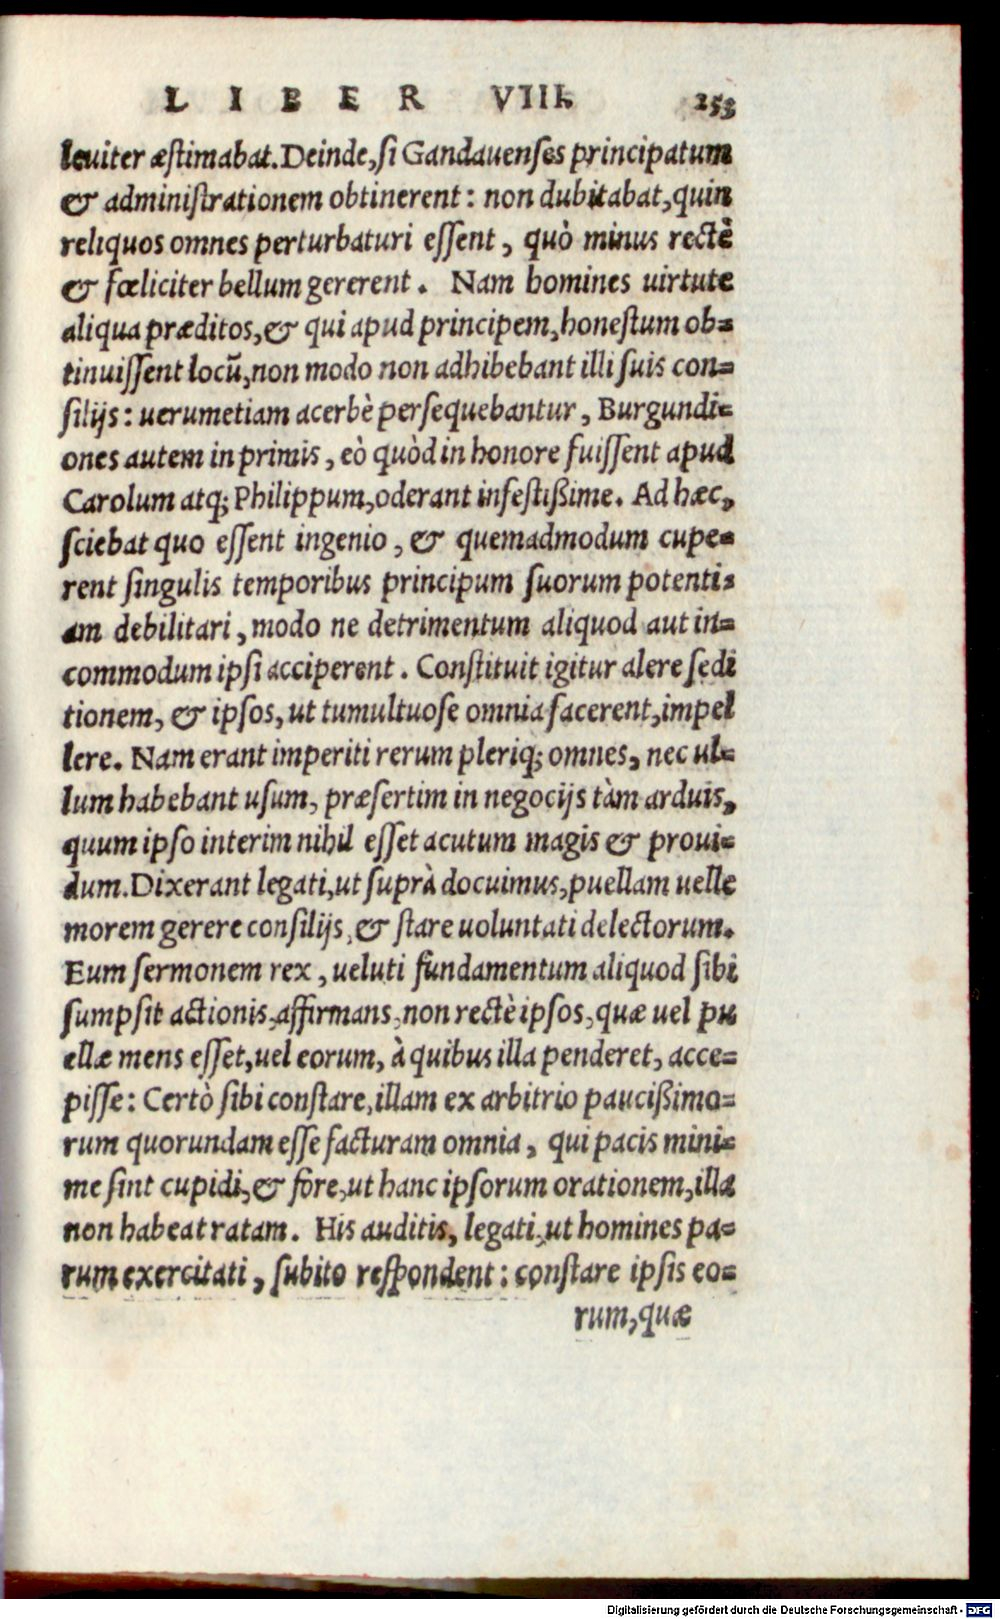 LIBER VIII. 253
leuiter æstimabat. Deinde, si Gandauenses principatum
& administrationem obtinerent: non dubitabat, quin
reliquos omnes perturbaturi essent, quò minus rectè
& fœliciter bellum gererent. Nam homines uirtute
aliqua præditos, & qui apud principem, honestum ob=
tinuissent locũ, non modo non adhibebant illi suis con=
silijs: uerumetiam acerbè persequebantur, Burgundi=
ones autem in primis, eò quòd in honore fuissent apud
Carolum atq; Philippum, oderant infestißime. Ad hæc,
sciebat quo essent ingenio, & quemadmodum cupe=
rent singulis temporibus principum suorum potenti=
am debilitari, modo ne detrimentum aliquod aut in=
commodum ipsi acciperent. Constituit igitur alere sedi
tionem, & ipsos, ut tumultuose omnia facerent, impel
lere. Nam erant imperiti rerum pleriq; omnes, nec ul=
lum habebant usum, præsertim in negocijs tàm arduis,
quum ipso interim nihil esset acutum magis & proui=
dum. Dixerant legati, ut suprà docuimus, puellam uelle
morem gerere consilijs, & stare uoluntati delectorum.
Eum sermonem rex, ueluti fundamentum aliquod sibi
sumpsit actionis, affirmans, non rectè ipsos, quæ uel pu
ellæ mens esset, uel eorum, à quibus illa penderet, acce=
pisse: Certò sibi constare, illam ex arbitrio paucißimo=
rum quorundam esse facturam omnia, qui pacis mini=
me sint cupidi, & fore, ut hanc ipsorum orationem, illa
non habeat ratam. His auditis, legati, ut homines pa=
rum exercitati, subito respondent: constare ipsis eo=
rum, quæ
Digitalisierung gefördert durch die Deutsche Forschungsgemeinschaft - DFG